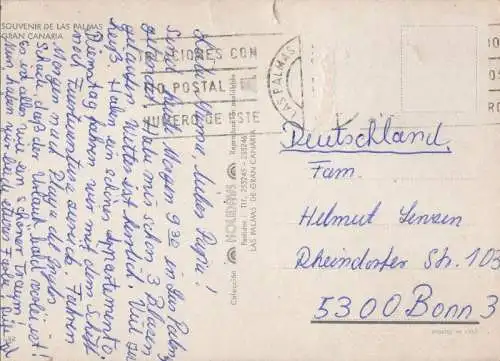 SOUVENIR DE LAS PALMAS
GRAN CANARIA
Liebe Mama, lieber Papa!
Sind heut Morgen 9.30 in Las Palmas
gelandet. Haben mir schon 3 Blasen
gelaufen. Wetter ist herrlich! Viel zu
heiß. Haben ein schönes Appartement.
Dienstag fahren wir mit dem Schiff
nach Fuerteventura zurück. Fahren
Morgen nach Playa del Ingles
Schade, daß der Urlaub bald vorbei ist!
Es ist alles wie ein schöner Traum!
Nun haben wir bald etwas
Colección HOLIDAYS Reproducción prohibida
Perfiles - Tlf.: 255245 - 255246
LAS PALMAS DE GRAN CANARIA
CIONES CON
O POSTAL
NUMERO DE ESTE
LAS PALMAS
Deutschland
Fam.
Helmut Jensen
Rheindorfer Str. 103
5300 Bonn 3